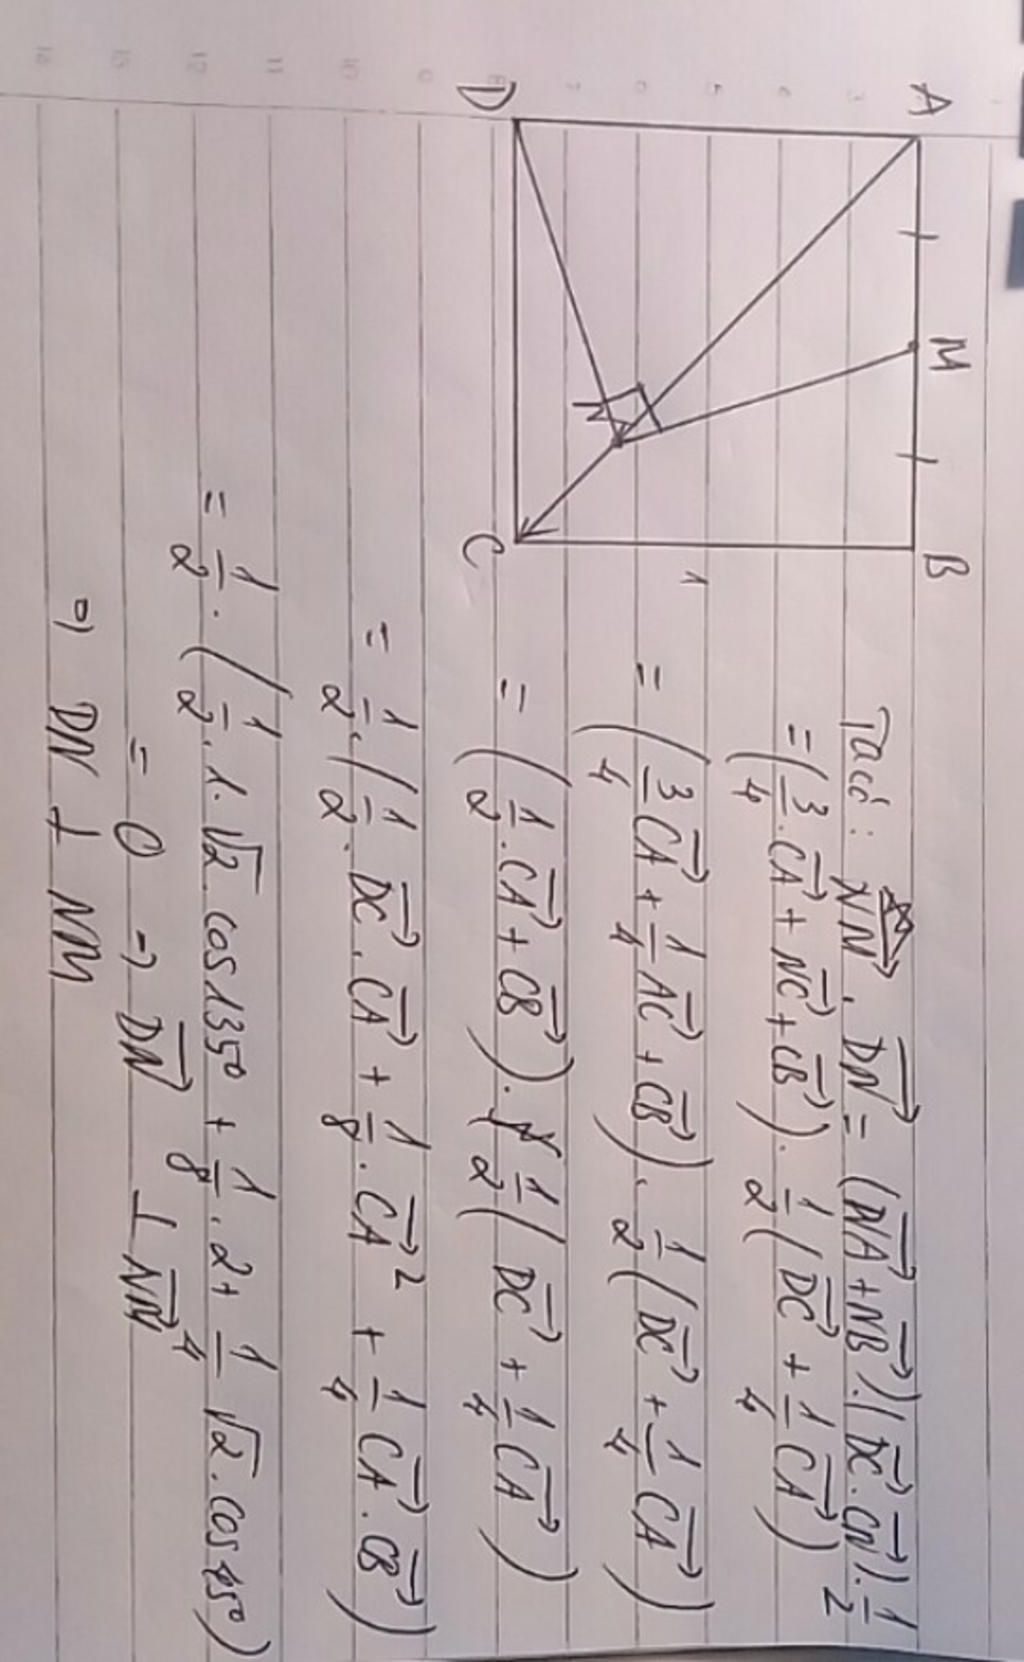 A M B
D N C
1
Ta có: \overrightarrow{NM} . \overrightarrow{DN} = (\overrightarrow{NA} + \overrightarrow{NB}).(\overrightarrow{DC} . \overrightarrow{CN}). \frac{1}{2}
= (\frac{3}{4}.\overrightarrow{CA} + \overrightarrow{NC} + \overrightarrow{CB}). \frac{1}{2}(\overrightarrow{DC} + \frac{1}{4}\overrightarrow{CA})
= (\frac{3}{4}\overrightarrow{CA} + \frac{1}{4}\overrightarrow{AC} + \overrightarrow{CB}). \frac{1}{2}(\overrightarrow{DC} + \frac{1}{4}\overrightarrow{CA})
= (\frac{1}{2}.\overrightarrow{CA} + \overrightarrow{CB}). \frac{1}{2}(\overrightarrow{DC} + \frac{1}{4}\overrightarrow{CA})
= \frac{1}{2}.(\frac{1}{2}.\overrightarrow{DC}.\overrightarrow{CA} + \frac{1}{8}.\overrightarrow{CA}^2 + \frac{1}{4}\overrightarrow{CA}.\overrightarrow{CB})
= \frac{1}{2}.(\frac{1}{2}.1.\sqrt{2}.cos135° + \frac{1}{8}.2 + \frac{1}{4}\sqrt{2}.cos45°)
= 0 ⇒ \overrightarrow{DN} ⊥ \overrightarrow{NM}
⇒ DN ⊥ NM